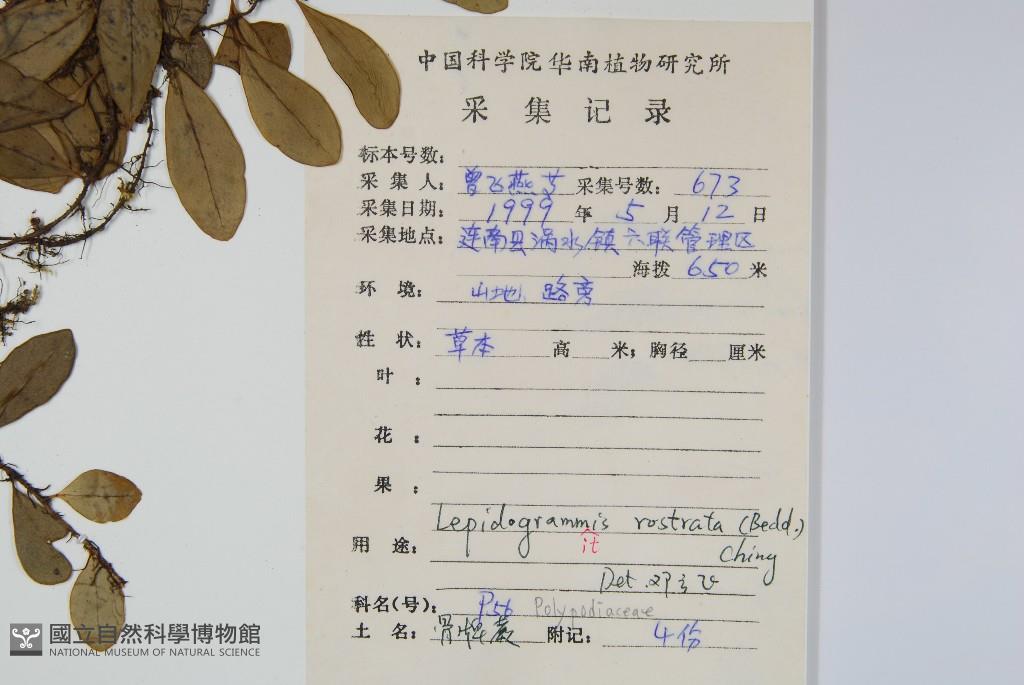 中国科学院华南植物研究所
采集记录
标本号数：
采集人：曾飞燕等 采集号数：673
采集日期：1999年5月12日
采集地点：连南县涡水镇六联管理区
海拨 650 米
环境：山地 路旁
性状：草本 高 米；胸径 厘米
叶：
花：
果：
Lepidogrammis rostrata (Bedd.)
it
用途： Ching
Det.
科名(号)：P56 Polypodiaceae
土名：骨牌蕨 附记：4份
國立自然科學博物館
NATIONAL MUSEUM OF NATURAL SCIENCE